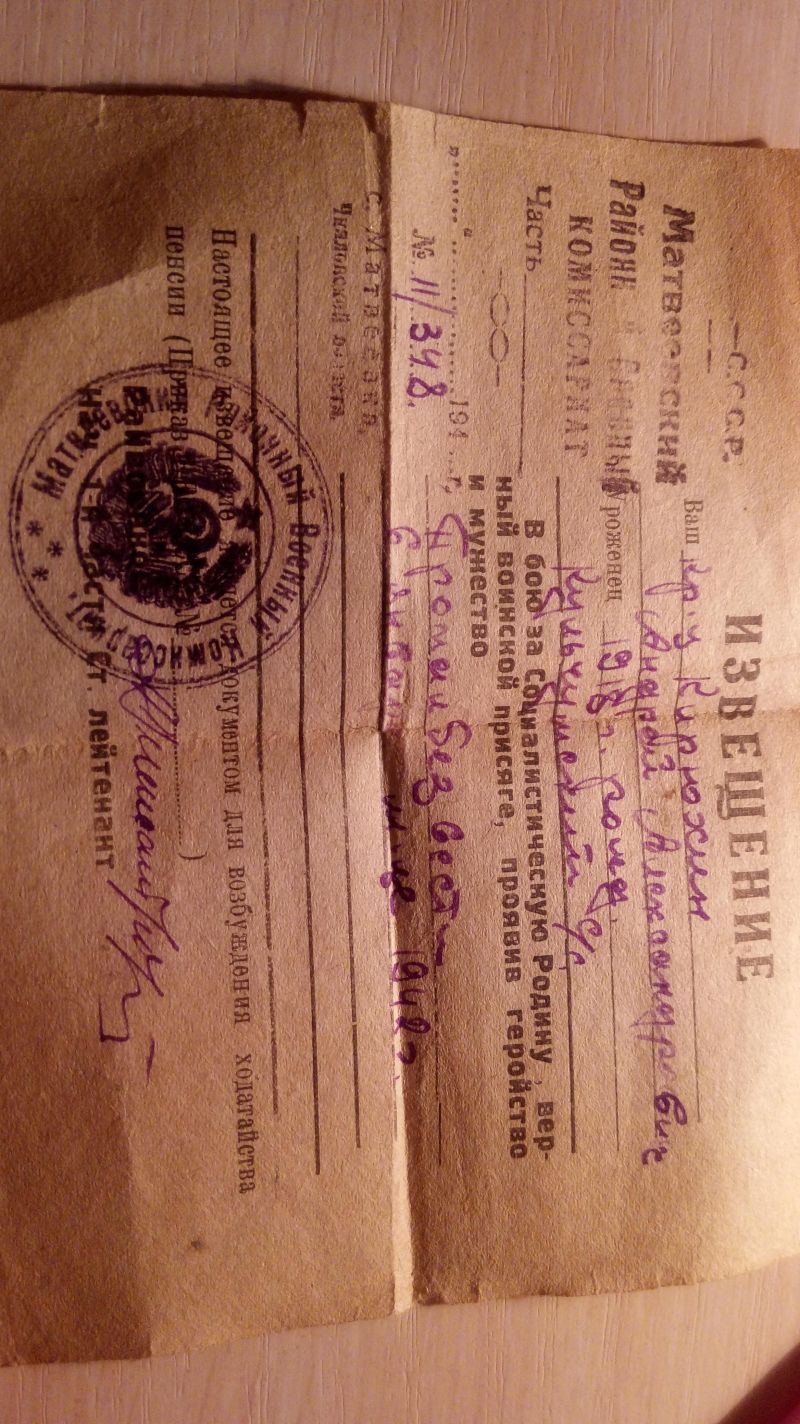 С.С.С.Р.
Матвеевский
Районный Военный
КОМИССАРИАТ
Часть
"......" ............ 194...г.
№ 11/348.
с. Матвеевка,
Чкаловской области.
ИЗВЕЩЕНИЕ
Ваш кр-ц Кирюхин
Андрей Александрович
Уроженец 1918 г. рожд.
с/с
В бою за Социалистическую Родину, вер-
ный воинской присяге, проявив геройство
и мужество
Пропал без вести
в 1942 г.
Настоящее извещение является документом для возбуждения ходатайства
пенсии (Приказ №............)
Матвеевский Районный Военный Комиссариат
Райвоенком
Нач. 1-й части ст. лейтенант